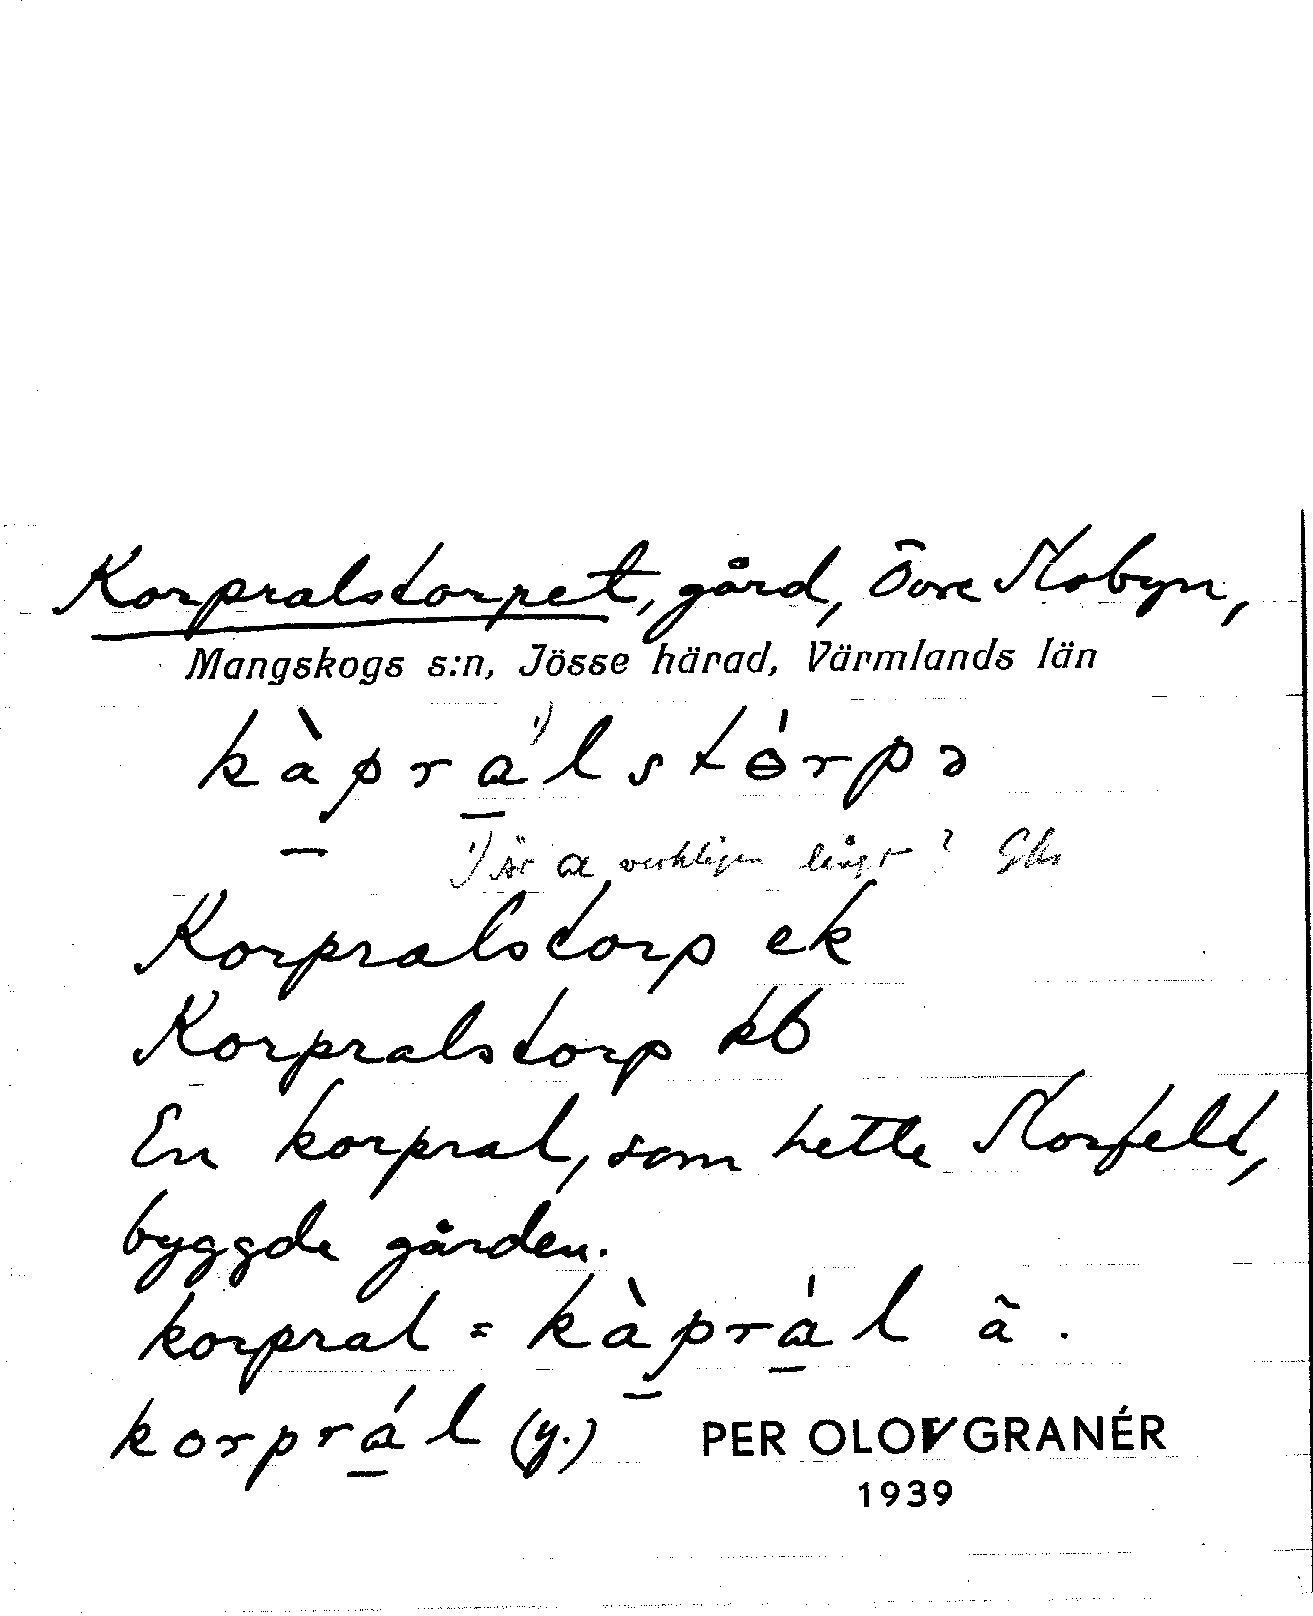 Korpralstorpet, gård, Övre Mobyn,
Mangskogs s:n, Jösse härad, Värmlands län
kàprál stɵ́rpə
1) är a verkligen långt?
Korpralstorp ek
Korpralstorp kb
En korpral, som hette Morfeldt,
byggde gården.
korpral = kàprál ã.
korprál (y.)
PER OLOV GRANÉR
1939